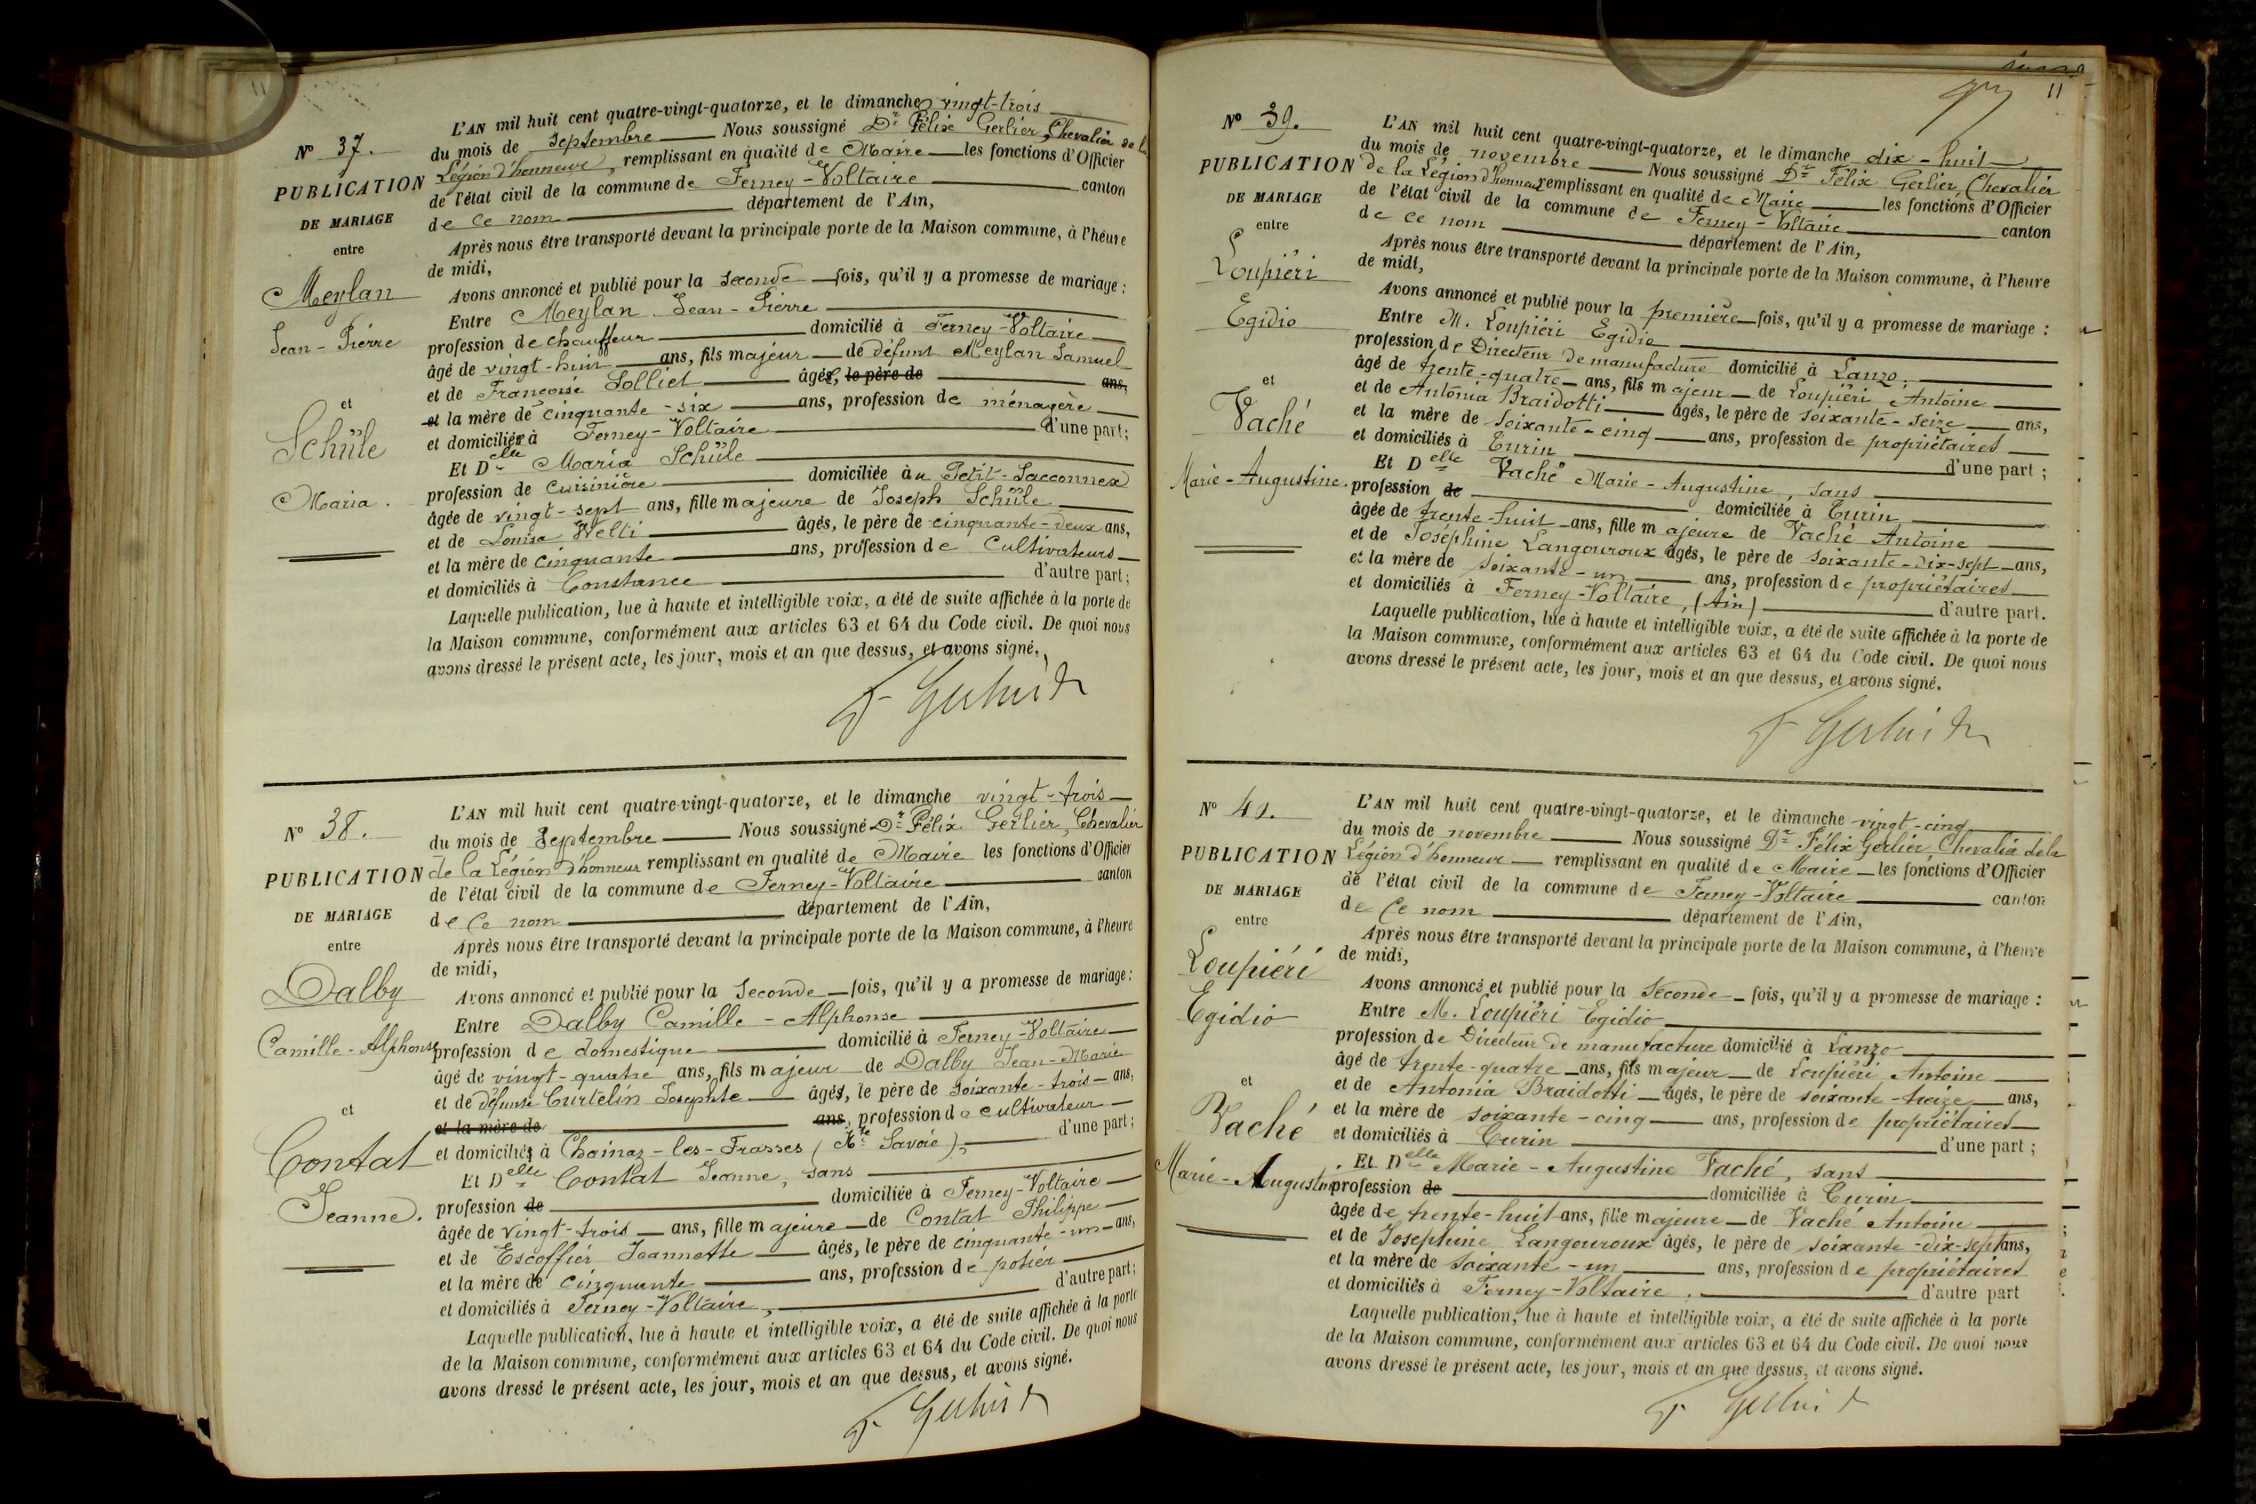 11
N° 37.
PUBLICATION
DE MARIAGE
entre
Meylan
Jean-Pierre
et
Schüle
Maria.
L'AN mil huit cent quatre-vingt-quatorze, et le dimanche vingt-trois
du mois de Septembre Nous soussigné Dr Félix Gerlier, Chevalier de la
Légion d'honneur, remplissant en qualité de Maire les fonctions d'Officier
de l'état civil de la commune de Ferney-Voltaire canton
de ce nom département de l'Ain,
Après nous être transporté devant la principale porte de la Maison commune, à l'heure
de midi,
Avons annoncé et publié pour la seconde fois, qu'il y a promesse de mariage :
Entre Meylan Jean-Pierre
profession de chauffeur domicilié à Ferney-Voltaire
âgé de vingt-huit ans, fils majeur de défunt Meylan Samuel
et de Françoise Solliet âgés, le père de ans,
et la mère de cinquante-six ans, profession de ménagère
et domiciliés à Ferney-Voltaire d'une part;
Et Delle Maria Schüle
profession de cuisinière domiciliée au Petit-Sacconnex
âgée de vingt-sept ans, fille majeure de Joseph Schüle
et de Louise Welti âgés, le père de cinquante-deux ans,
et la mère de cinquante ans, profession de cultivateurs
et domiciliés à Constance d'autre part;
Laquelle publication, lue à haute et intelligible voix, a été de suite affichée à la porte de
la Maison commune, conformément aux articles 63 et 64 du Code civil. De quoi nous
avons dressé le présent acte, les jour, mois et an que dessus, et avons signé.
F Gerlier Dr
N° 38.
PUBLICATION
DE MARIAGE
entre
Dalby
Camille-Alphonse
et
Contat
Jeanne.
L'AN mil huit cent quatre-vingt-quatorze, et le dimanche vingt-trois
du mois de Septembre Nous soussigné Dr Félix Gerlier, Chevalier
de la Légion d'honneur remplissant en qualité de Maire les fonctions d'Officier
de l'état civil de la commune de Ferney-Voltaire canton
de ce nom département de l'Ain,
Après nous être transporté devant la principale porte de la Maison commune, à l'heure
de midi,
Avons annoncé et publié pour la seconde fois, qu'il y a promesse de mariage :
Entre Dalby Camille-Alphonse
profession de domestique domicilié à Ferney-Voltaire
âgé de vingt-quatre ans, fils majeur de Dalby Jean-Marie
et de défunte Curtelin Josephte âgés, le père de soixante-trois ans,
et la mère de ans, profession de cultivateur
et domiciliés à Chainaz-les-Frasses (Hte Savoie), d'une part;
Et Delle Contat Jeanne, sans
profession de domiciliée à Ferney-Voltaire
âgée de vingt-trois ans, fille majeure de Contat Philippe
et de Escoffier Jeannette âgés, le père de cinquante-un ans,
et la mère de cinquante ans, profession de potier
et domiciliés à Ferney-Voltaire, d'autre part;
Laquelle publication, lue à haute et intelligible voix, a été de suite affichée à la porte
de la Maison commune, conformément aux articles 63 et 64 du Code civil. De quoi nous
avons dressé le présent acte, les jour, mois et an que dessus, et avons signé.
F Gerlier Dr
11
N° 39.
PUBLICATION
DE MARIAGE
entre
Loupiéri
Egidio
et
Vaché
Marie-Augustine.
L'AN mil huit cent quatre-vingt-quatorze, et le dimanche dix-huit
du mois de novembre Nous soussigné Dr Félix Gerlier, Chevalier
de la Légion d'honneur remplissant en qualité de Maire les fonctions d'Officier
de l'état civil de la commune de Ferney-Voltaire canton
de ce nom département de l'Ain,
Après nous être transporté devant la principale porte de la Maison commune, à l'heure
de midi,
Avons annoncé et publié pour la première fois, qu'il y a promesse de mariage :
Entre M. Loupiéri Egidio
profession de Directeur de manufacture domicilié à Lanzo.
âgé de trente-quatre ans, fils majeur de Loupiéri Antoine
et de Antonia Braidotti âgés, le père de soixante-seize ans,
et la mère de soixante-cinq ans, profession de propriétaires
et domiciliés à Turin d'une part ;
Et Delle Vaché Marie-Augustine, sans
profession de domiciliée à Turin
âgée de trente-huit ans, fille majeure de Vaché Antoine
et de Joséphine Langouroux âgés, le père de soixante-dix-sept ans,
et la mère de soixante-un ans, profession de propriétaires
et domiciliés à Ferney-Voltaire, (Ain) d'autre part.
Laquelle publication, lue à haute et intelligible voix, a été de suite affichée à la porte de
la Maison commune, conformément aux articles 63 et 64 du Code civil. De quoi nous
avons dressé le présent acte, les jour, mois et an que dessus, et avons signé.
F Gerlier Dr
N° 40.
PUBLICATION
DE MARIAGE
entre
Loupiéri
Egidio
et
Vaché
Marie-Augustine
L'AN mil huit cent quatre-vingt-quatorze, et le dimanche vingt-cinq
du mois de novembre Nous soussigné Dr Félix Gerlier Chevalier de la
Légion d'honneur remplissant en qualité de Maire les fonctions d'Officier
de l'état civil de la commune de Ferney-Voltaire canton
de ce nom département de l'Ain,
Après nous être transporté devant la principale porte de la Maison commune, à l'heure
de midi,
Avons annoncé et publié pour la seconde fois, qu'il y a promesse de mariage :
Entre M. Loupiéri Egidio
profession de Directeur de manufacture domicilié à Lanzo
âgé de trente-quatre ans, fils majeur de Loupiéri Antoine
et de Antonia Braidotti âgés, le père de soixante-treize ans,
et la mère de soixante-cinq ans, profession de propriétaires
et domiciliés à Turin d'une part ;
Et Delle Marie-Augustine Vaché, sans
profession de domiciliée à Turin
âgée de trente-huit ans, fille majeure de Vaché Antoine
et de Josephine Langouroux âgés, le père de soixante-dix-sept ans,
et la mère de soixante-un ans, profession de propriétaires
et domiciliés à Ferney-Voltaire. d'autre part
Laquelle publication, lue à haute et intelligible voix, a été de suite affichée à la porte
de la Maison commune, conformément aux articles 63 et 64 du Code civil. De quoi nous
avons dressé le présent acte, les jour, mois et an que dessus, et avons signé.
F Gerlier Dr